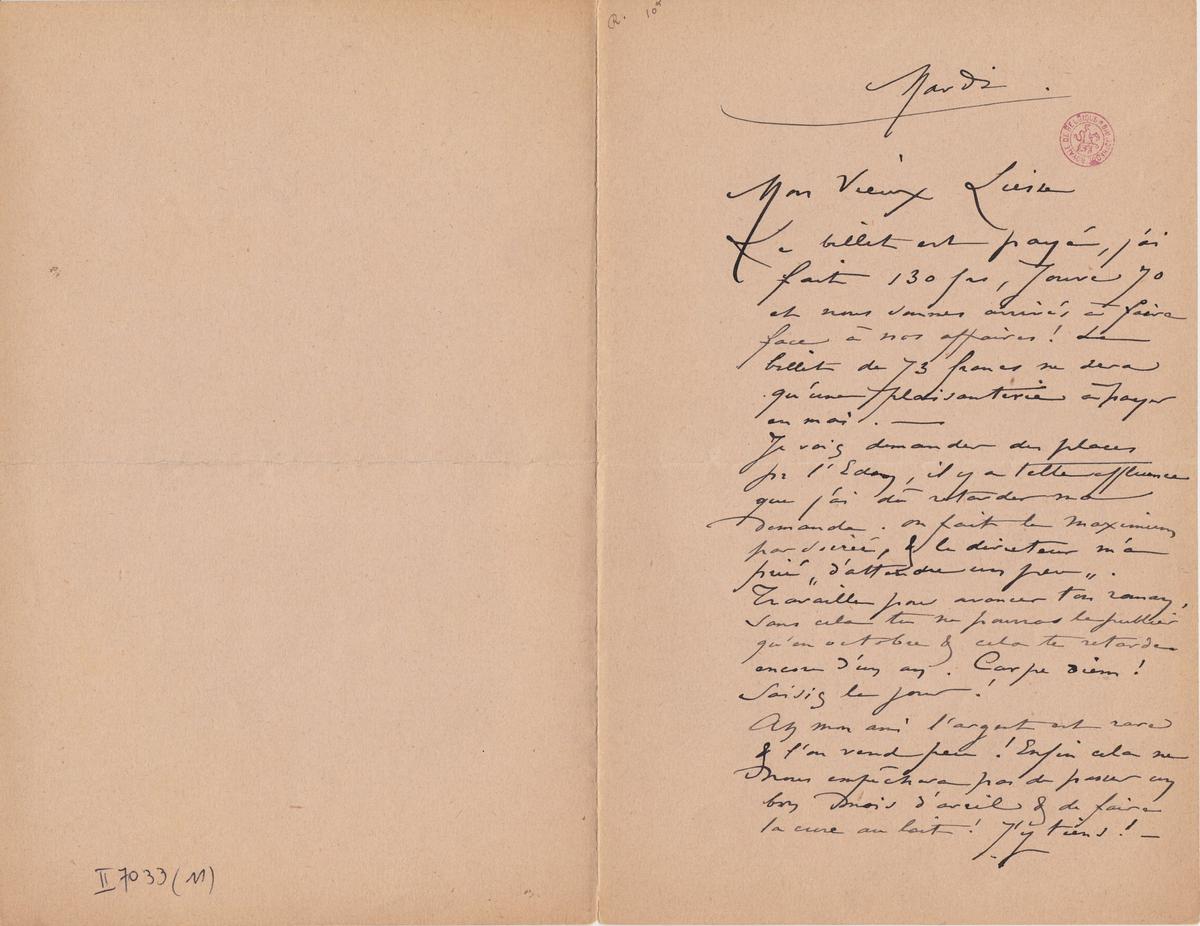 R. 10a
Mardi.
Mon Vieux Liesse
Le billet est payé, j'ai
fait 130 frs, Jouve 70
et nous sommes arrivés à faire
face à nos affaires ! Le
billet de 73 francs ne sera
qu'une plaisanterie à payer
en mai. —
Je vais demander des places
pr l'Eden, il y a telle affluence
que j'ai dû retarder ma
demande. on fait le maximum
par soirée, & le directeur m'a
prié "d'attendre un peu".
Travaille pour avancer ton roman,
sans cela tu ne pourras le publier
qu'en octobre & cela te retarde
encore d'un an. Carpe diem !
Saisis le jour !
Ah mon ami l'argent est rare
& l'on vend peu ! Enfin cela ne
nous empêchera pas de passer un
bon mois d'avril & de faire
la cure au lait ! J'y tiens ! —
II 7033 (11)